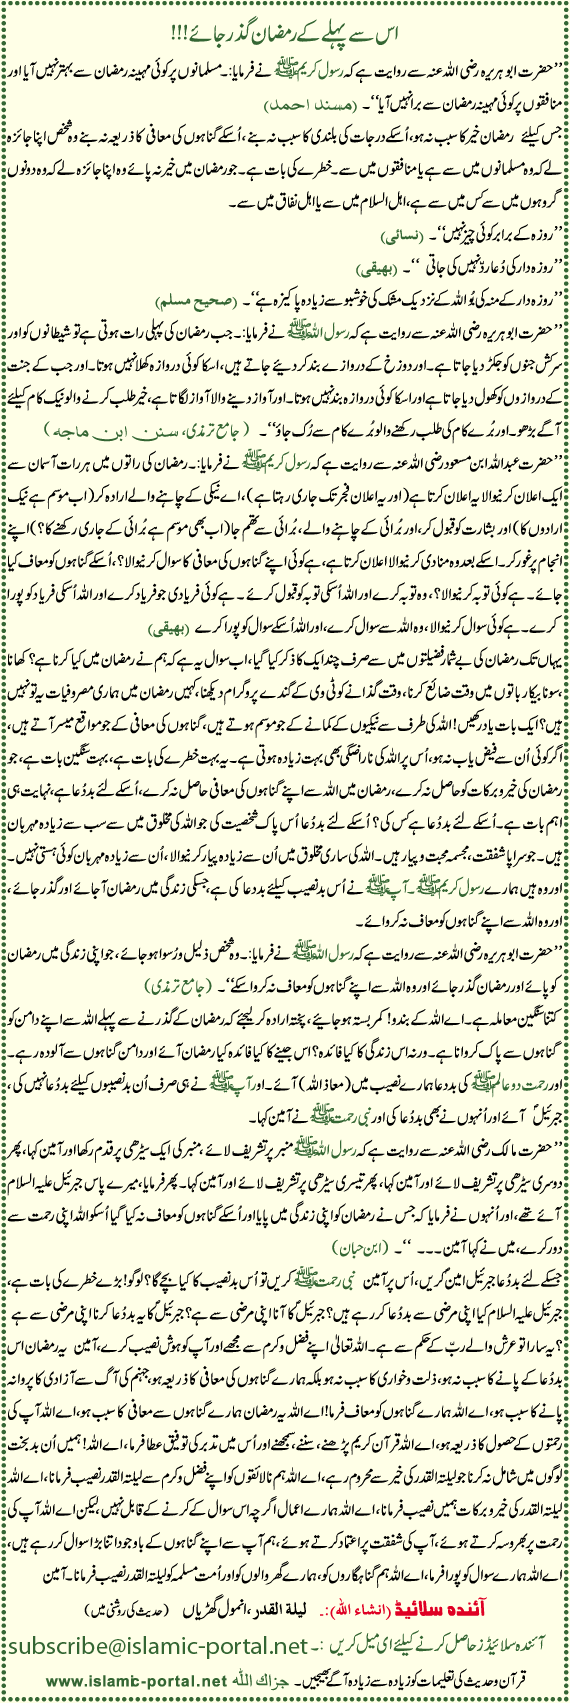 اس سے پہلے کے رمضان گذر جائے!!!
’’حضرت ابو ہریرہ رضی اللہ عنہ سے روایت ہے کہ رسول کریم ﷺ نے فرمایا:۔ مسلمانوں پر کوئی مہینہ رمضان سے بہتر نہیں آیا اور
منافقوں پر کوئی مہینہ رمضان سے برا نہیں آیا‘‘۔ (مسند احمد)
جس کیلئے رمضان خیر کا سبب نہ ہو، اُسکے درجات کی بلندی کا سبب نہ بنے، اُسکے گناہوں کی معافی کا ذریعہ نہ بنے وہ شخص اپنا جائزہ
لے کہ وہ مسلمانوں میں سے ہے یا منافقوں میں سے۔ خطرے کی بات ہے۔ جو رمضان میں خیر نہ پائے وہ اپنا جائزہ لے کہ وہ دونوں
گروہوں میں سے کس میں سے ہے، اہل السلام میں سے یا اہل نفاق میں سے۔
’’روزہ کے برابر کوئی چیز نہیں‘‘۔ (نسائی)
’’روزہ دار کی دُعا ردّ نہیں کی جاتی ‘‘۔ (بہیقی)
’’روزہ دار کے منہ کی بُو اللہ کے نزدیک مشک کی خوشبو سے زیادہ پاکیزہ ہے‘‘۔ (صحیح مسلم)
’’حضرت ابو ہریرہ رضی اللہ عنہ سے روایت ہے کہ رسول اللہ ﷺ نے فرمایا:۔ جب رمضان کی پہلی رات ہوتی ہے تو شیطانوں کو اور
سرکش جنوں کو جکڑ دیا جاتا ہے۔ اور دوزخ کے دروازے بند کر دیئے جاتے ہیں، اسکا کوئی دروازہ کھلا نہیں ہوتا۔ اور جب کے جنت
کے دروازوں کو کھول دیا جاتا ہے اور اسکا کوئی دروازہ بند نہیں ہوتا۔ اور آواز دینے والا آواز لگاتا ہے، خیر طلب کرنے والو نیک کام کیلئے
آگے بڑھو۔ اور بُرے کام کی طلب رکھنے والو بُرے کام سے رُک جاؤ‘‘۔ (جامع ترمذی، سنن ابن ماجه)
’’حضرت عبداللہ ابن مسعود رضی اللہ عنہ سے روایت ہے کہ رسول کریم ﷺ نے فرمایا:۔ رمضان کی راتوں میں ہر رات آسمان سے
ایک اعلان کرنیوالا یہ اعلان کرتا ہے (اور یہ اعلان فجر تک جاری رہتا ہے)، اے نیکی کے چاہنے والے ارادہ کر (اب موسم ہے نیک
ارادوں کا) اور بشارت کو قبول کر، اور بُرائی کے چاہنے والے، بُرائی سے تھم جا (اب بھی موسم ہے بُرائی کے جاری رکھنے کا؟) اپنے
انجام پر غور کر۔ اسکے بعد وہ منادی کرنیوالا اعلان کرتا ہے، ہے کوئی اپنے گناہوں کی معافی کا سوال کرنیوالا؟، اُسکے گناہوں کو معاف کیا
جائے۔ ہے کوئی توبہ کرنیوالا؟، وہ توبہ کرے اور اللہ اُسکی توبہ کو قبول کرئے۔ ہے کوئی فریادی جو فریاد کرے اور اللہ اُسکی فریاد کو پورا
کرے۔ ہے کوئی سوال کرنیوالا، وہ اللہ سے سوال کرے، اور اللہ اُسکے سوال کو پورا کرے (بہیقی)
یہاں تک رمضان کی بےشمار فضیلتوں میں سے صرف چند ایک کا ذکر کیا گیا، اب سوال یہ ہے کہ ہم نے رمضان میں کیا کرنا ہے؟ کھانا
،سونا بیکار باتوں میں وقت ضائع کرنا، وقت گذانے کو ٹی وی کے گندے پروگرام دیکھنا، کہیں رمضان میں ہماری مصروفیات یہ تو نہیں
ہیں؟ ایک بات یاد رکھیں! اللہ کی طرف سے نیکیوں کے کمانے کے جو موسم ہوتے ہیں، گناہوں کی معافی کے جو مواقع میسر آتے ہیں،
اگر کوئی اُن سے فیض یاب نہ ہو، اُس پر اللہ کی ناراضگی بھی بہت زیادہ ہوتی ہے۔ یہ بہت خطرے کی بات ہے، بہت سنگین بات ہے، جو
رمضان کی خیر و برکات کو حاصل نہ کرے، رمضان میں اللہ سے اپنے گناہوں کی معافی حاصل نہ کرے، اُسکے لئے بددُعا ہے، نہایت ہی
اہم بات ہے۔ اُسکے لئے بددُعا ہے کس کی؟ اُسکے لئے بددُعا اُس پاک شخصیت کی جو اللہ کی مخلوق میں سے سب سے زیادہ مہربان
ہیں۔ جو سراپا شفقت، مجسمہ محبت و پیار ہیں۔ اللہ کی ساری مخلوق میں اُن سے زیادہ پیار کرنیوالا، اُن سے زیادہ مہربان کوئی ہستی نہیں۔
اور وہ ہیں ہمارے رسول کریم ﷺ۔ آپ ﷺ نے اُس بدنصیب کیلئے بددعا کی ہے، جسکی زندگی میں رمضان آجائے اور گذر جائے،
اور وہ اللہ سے اپنے گناہوں کو معاف نہ کروائے۔
’’حضرت ابو ہریرہ رضی اللہ عنہ سے روایت ہے کہ رسول اللہ ﷺ نے فرمایا:۔ وہ شخص ذلیل و رُسوا ہو جائے، جو اپنی زندگی میں رمضان
کو پائے اور رمضان گذر جائے اور وہ اللہ سے اپنے گناہوں کو معاف نہ کروا سکے‘‘۔ (جامع ترمذی)
کتنا سنگین معاملہ ہے۔ اے اللہ کے بندو! کمربستہ ہو جائیے، پختہ ارادہ کر لیجئے کہ رمضان کے گذرنے سے پہلے اللہ سے اپنے دامن کو
گناہوں سے پاک کروانا ہے۔ ورنہ اس زندگی کا کیا فائدہ؟ اس جینے کا کیا فائدہ کیا رمضان آئے اور دامن گناہوں سے آلودہ رہے۔
اور رحمت دو عالم ﷺ کی بددعا ہمارے نصیب میں (معاذ اللہ) آئے۔ اور آپ ﷺ نے ہی صرف اُن بدنصیبوں کیلئے بددُعا نہیں کی،
جبرئیلؑ آئے اور اُنہوں نے بھی بددُعا کی اور نبی رحمت ﷺ نے آمین کہا۔
’’حضرت مالک رضی اللہ عنہ سے روایت ہے کہ رسول اللہ ﷺ منبر پر تشریف لائے، منبر کی ایک سیڑھی پر قدم رکھا اور آمین کہا، پھر
دوسری سیڑھی پر تشریف لائے اور آمین کہا، پھر تیسری سیڑھی پر تشریف لائے اور آمین کہا۔ پھر فرمایا، میرے پاس جبرئیل علیہ السلام
آئے تھے، اور اُنہوں نے فرمایا کہ جس نے رمضان کو اپنی زندگی میں پایا اور اُسکے گناہوں کو معاف نہ کیا گیا اُسکو اللہ اپنی رحمت سے
دور کرے، میں نے کہا آمین۔۔۔ ‘‘۔ (ابن حبان)
جسکے لئے بددُعا جبرئیل امینؑ کریں، اُس پر آمین نبی رحمت ﷺ کریں تو اُس بدنصیب کا کیا بچے گا؟ لوگو! بڑے خطرے کی بات ہے،
جبرئیل علیہ السلام کیا اپنی مرضی سے بددُعا کر رہے ہیں؟ جبرئیلؑ کا آنا اپنی مرضی سے ہے؟ جبرئیلؑ کا یہ بددُعا کرنا اپنی مرضی سے ہے
؟ یہ سارا تو عرش والے ربّ کے حکم سے ہے۔ اللہ تعالیٰ اپنے فضل و کرم سے مجھے اور آپ کو ہوش نصیب کرے، آمین یہ رمضان اس
بددُعا کے پانے کا سبب نہ ہو، ذلت و خواری کا سبب نہ ہو بلکہ ہمارے گناہوں کی معافی کا ذریعہ ہو، جہنم کی آگ سے آزادی کا پروانہ
پانے کا سبب ہو، اے اللہ ہمارے گناہوں کو معاف فرما! اے اللہ یہ رمضان ہمارے گناہوں سے معافی کا سبب ہو، اے اللہ آپ کی
رحمتوں کے حصول کا ذریعہ ہو، اے اللہ قرآن کریم پڑھنے، سننے، سمجھنے اور اُس میں تدبر کی توفیق عطا فرما، اے اللہ! ہمیں اُن بدبخت
لوگوں میں شامل نہ کرنا جو لیلۃ القدر کی خیر سے محروم رہے، اے اللہ ہم نالائقوں کو اپنے فضل و کرم سے لیلۃ القدر نصیب فرمانا، اے اللہ
لیلۃ القدر کی خیر و برکات ہمیں نصیب فرمانا، اے اللہ ہمارے اعمال اگرچہ اس سوال کے کرنے کے قابل نہیں، لیکن اے اللہ آپ کی
رحمت پر بھروسہ کرتے ہوئے، آپ کی شفقت پر اعتماد کرتے ہوئے، ہم آپ سے اپنے گناہوں کے باوجود اتنا بڑا سوال کر رہے ہیں،
اے اللہ ہمارے سوال کو پورا فرما، اے اللہ ہم گناہگاروں کو، ہمارے گھر والوں کو اور اُمت مسلمہ کو لیلۃ القدر نصیب فرمانا۔ آمین
آئندہ سلائیڈ (انشاء اللہ):۔ لیلة القدر، انمول گھڑیاں (حدیث کی روشنی میں)
آئندہ سلائیڈز حاصل کرنے کیلئے ای میل کریں :۔ subscribe@islamic-portal.net
قرآن و حدیث کی تعلیمات کو زیادہ سے زیادہ آگے بھیجیں۔ جزاك الله www.islamic-portal.net